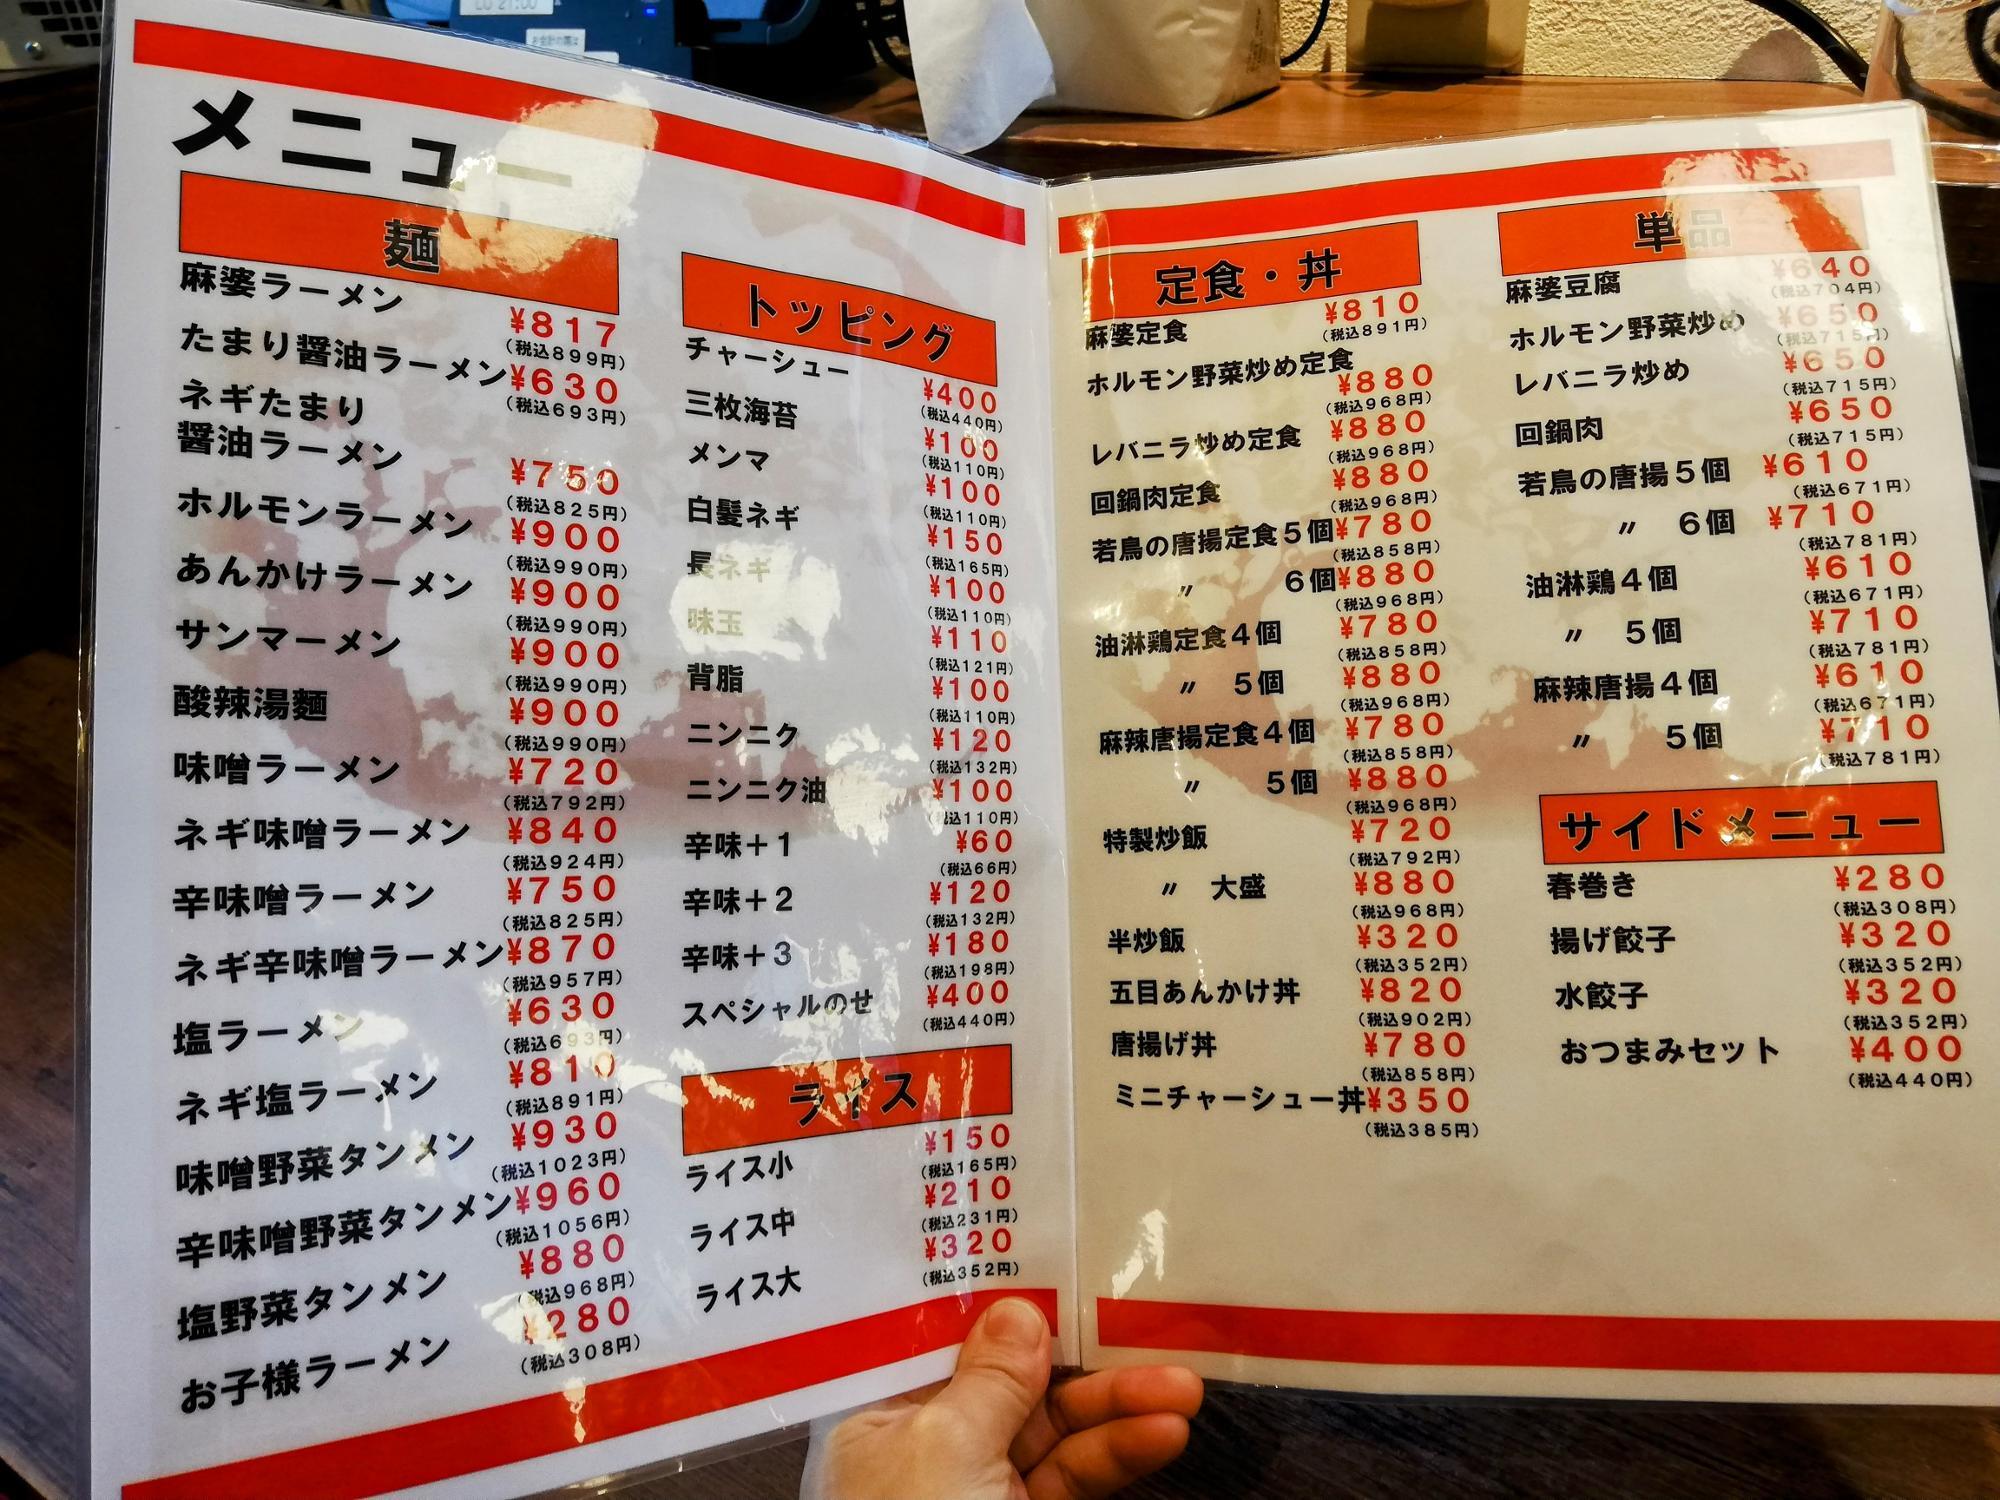 LO 21:00
お会計の際は
メニュー
麺
麻婆ラーメン
¥817
(税込899円)
たまり醤油ラーメン¥630
(税込693円)
ネギたまり
醤油ラーメン
¥750
(税込825円)
ホルモンラーメン
¥900
(税込990円)
あんかけラーメン
¥900
(税込990円)
サンマーメン
¥900
(税込990円)
酸辣湯麺
¥900
(税込990円)
味噌ラーメン
¥720
(税込792円)
ネギ味噌ラーメン
¥840
(税込924円)
辛味噌ラーメン
¥750
(税込825円)
ネギ辛味噌ラーメン¥870
(税込957円)
塩ラーメン
¥630
(税込693円)
ネギ塩ラーメン
¥810
(税込891円)
味噌野菜タンメン
¥930
(税込1023円)
辛味噌野菜タンメン¥960
(税込1056円)
塩野菜タンメン
¥880
(税込968円)
お子様ラーメン
¥280
(税込308円)
トッピング
チャーシュー
¥400
(税込440円)
三枚海苔
¥100
(税込110円)
メンマ
¥100
(税込110円)
白髪ネギ
¥150
(税込165円)
長ネギ
¥100
(税込110円)
味玉
¥110
(税込121円)
背脂
¥100
(税込110円)
ニンニク
¥120
(税込132円)
ニンニク油
¥100
(税込110円)
辛味+1
¥60
(税込66円)
辛味+2
¥120
(税込132円)
辛味+3
¥180
(税込198円)
スペシャルのせ
¥400
(税込440円)
ライス
ライス小
¥150
(税込165円)
ライス中
¥210
(税込231円)
ライス大
¥320
(税込352円)
定食・丼
麻婆定食
¥810
(税込891円)
ホルモン野菜炒め定食
¥880
(税込968円)
レバニラ炒め定食
¥880
(税込968円)
回鍋肉定食
¥880
(税込968円)
若鳥の唐揚定食5個¥780
(税込858円)
〃 6個¥880
(税込968円)
油淋鶏定食4個
¥780
(税込858円)
〃 5個
¥880
(税込968円)
麻辣唐揚定食4個
¥780
(税込858円)
〃 5個
¥880
(税込968円)
特製炒飯
¥720
(税込792円)
〃 大盛
¥880
(税込968円)
半炒飯
¥320
(税込352円)
五目あんかけ丼
¥820
(税込902円)
唐揚げ丼
¥780
(税込858円)
ミニチャーシュー丼¥350
(税込385円)
単品
麻婆豆腐
¥640
(税込704円)
ホルモン野菜炒め
¥650
(税込715円)
レバニラ炒め
¥650
(税込715円)
回鍋肉
¥650
(税込715円)
若鳥の唐揚5個
¥610
(税込671円)
〃 6個
¥710
(税込781円)
油淋鶏4個
¥610
(税込671円)
〃 5個
¥710
(税込781円)
麻辣唐揚4個
¥610
(税込671円)
〃 5個
¥710
(税込781円)
サイドメニュー
春巻き
¥280
(税込308円)
揚げ餃子
¥320
(税込352円)
水餃子
¥320
(税込352円)
おつまみセット
¥400
(税込440円)